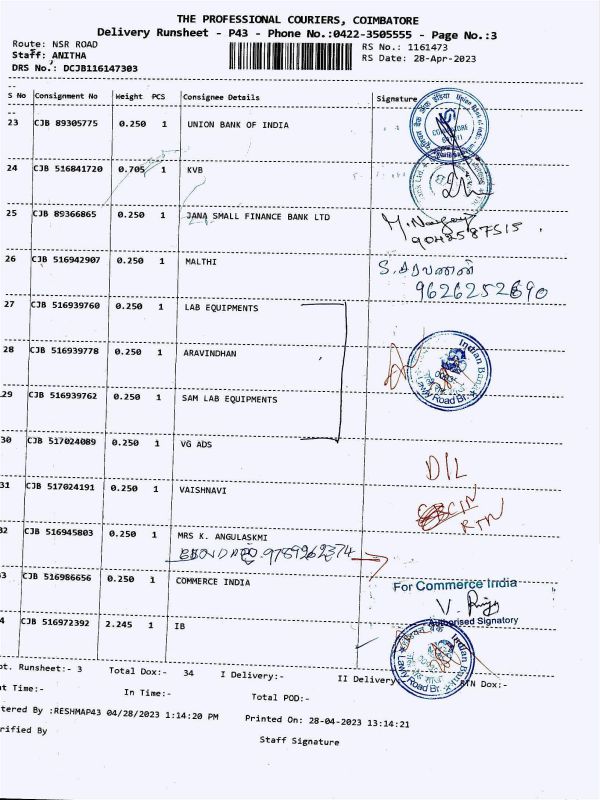 THE PROFESSIONAL COURIERS, COIMBATORE
Delivery Runsheet - P43 - Phone No.:0422-3505555 - Page No.:3
Route: NSR ROAD
RS No.: 1161473
Staff: ANITHA
RS Date: 28-Apr-2023
DRS No.: DCJB116147303
S No Consignment No Weight PCS Consignee Details Signature
23 CJB 89305775 0.250 1 UNION BANK OF INDIA
24 CJB 516841720 0.705 1 KVB
25 CJB 89366865 0.250 1 JANA SMALL FINANCE BANK LTD
9042587515
26 CJB 516942907 0.250 1 MALTHI
S. சரவணன்
9626252690
27 CJB 516939760 0.250 1 LAB EQUIPMENTS
28 CJB 516939778 0.250 1 ARAVINDHAN
Indian Bank
Lawly Road Br.
29 CJB 516939762 0.250 1 SAM LAB EQUIPMENTS
30 CJB 517024089 0.250 1 VG ADS
D/L
31 CJB 517024191 0.250 1 VAISHNAVI
RTN
32 CJB 516945803 0.250 1 MRS K. ANGULASKMI
9789262374
33 CJB 516986656 0.250 1 COMMERCE INDIA
For Commerce India
Authorised Signatory
34 CJB 516972392 2.245 1 IB
Indian Bank
Lawly Road Br.
pt. Runsheet:- 3 Total Dox:- 34 I Delivery:- II Delivery RTN Dox:-
t Time:- In Time:- Total POD:-
tered By :RESHMAP43 04/28/2023 1:14:20 PM Printed On: 28-04-2023 13:14:21
rified By
Staff Signature